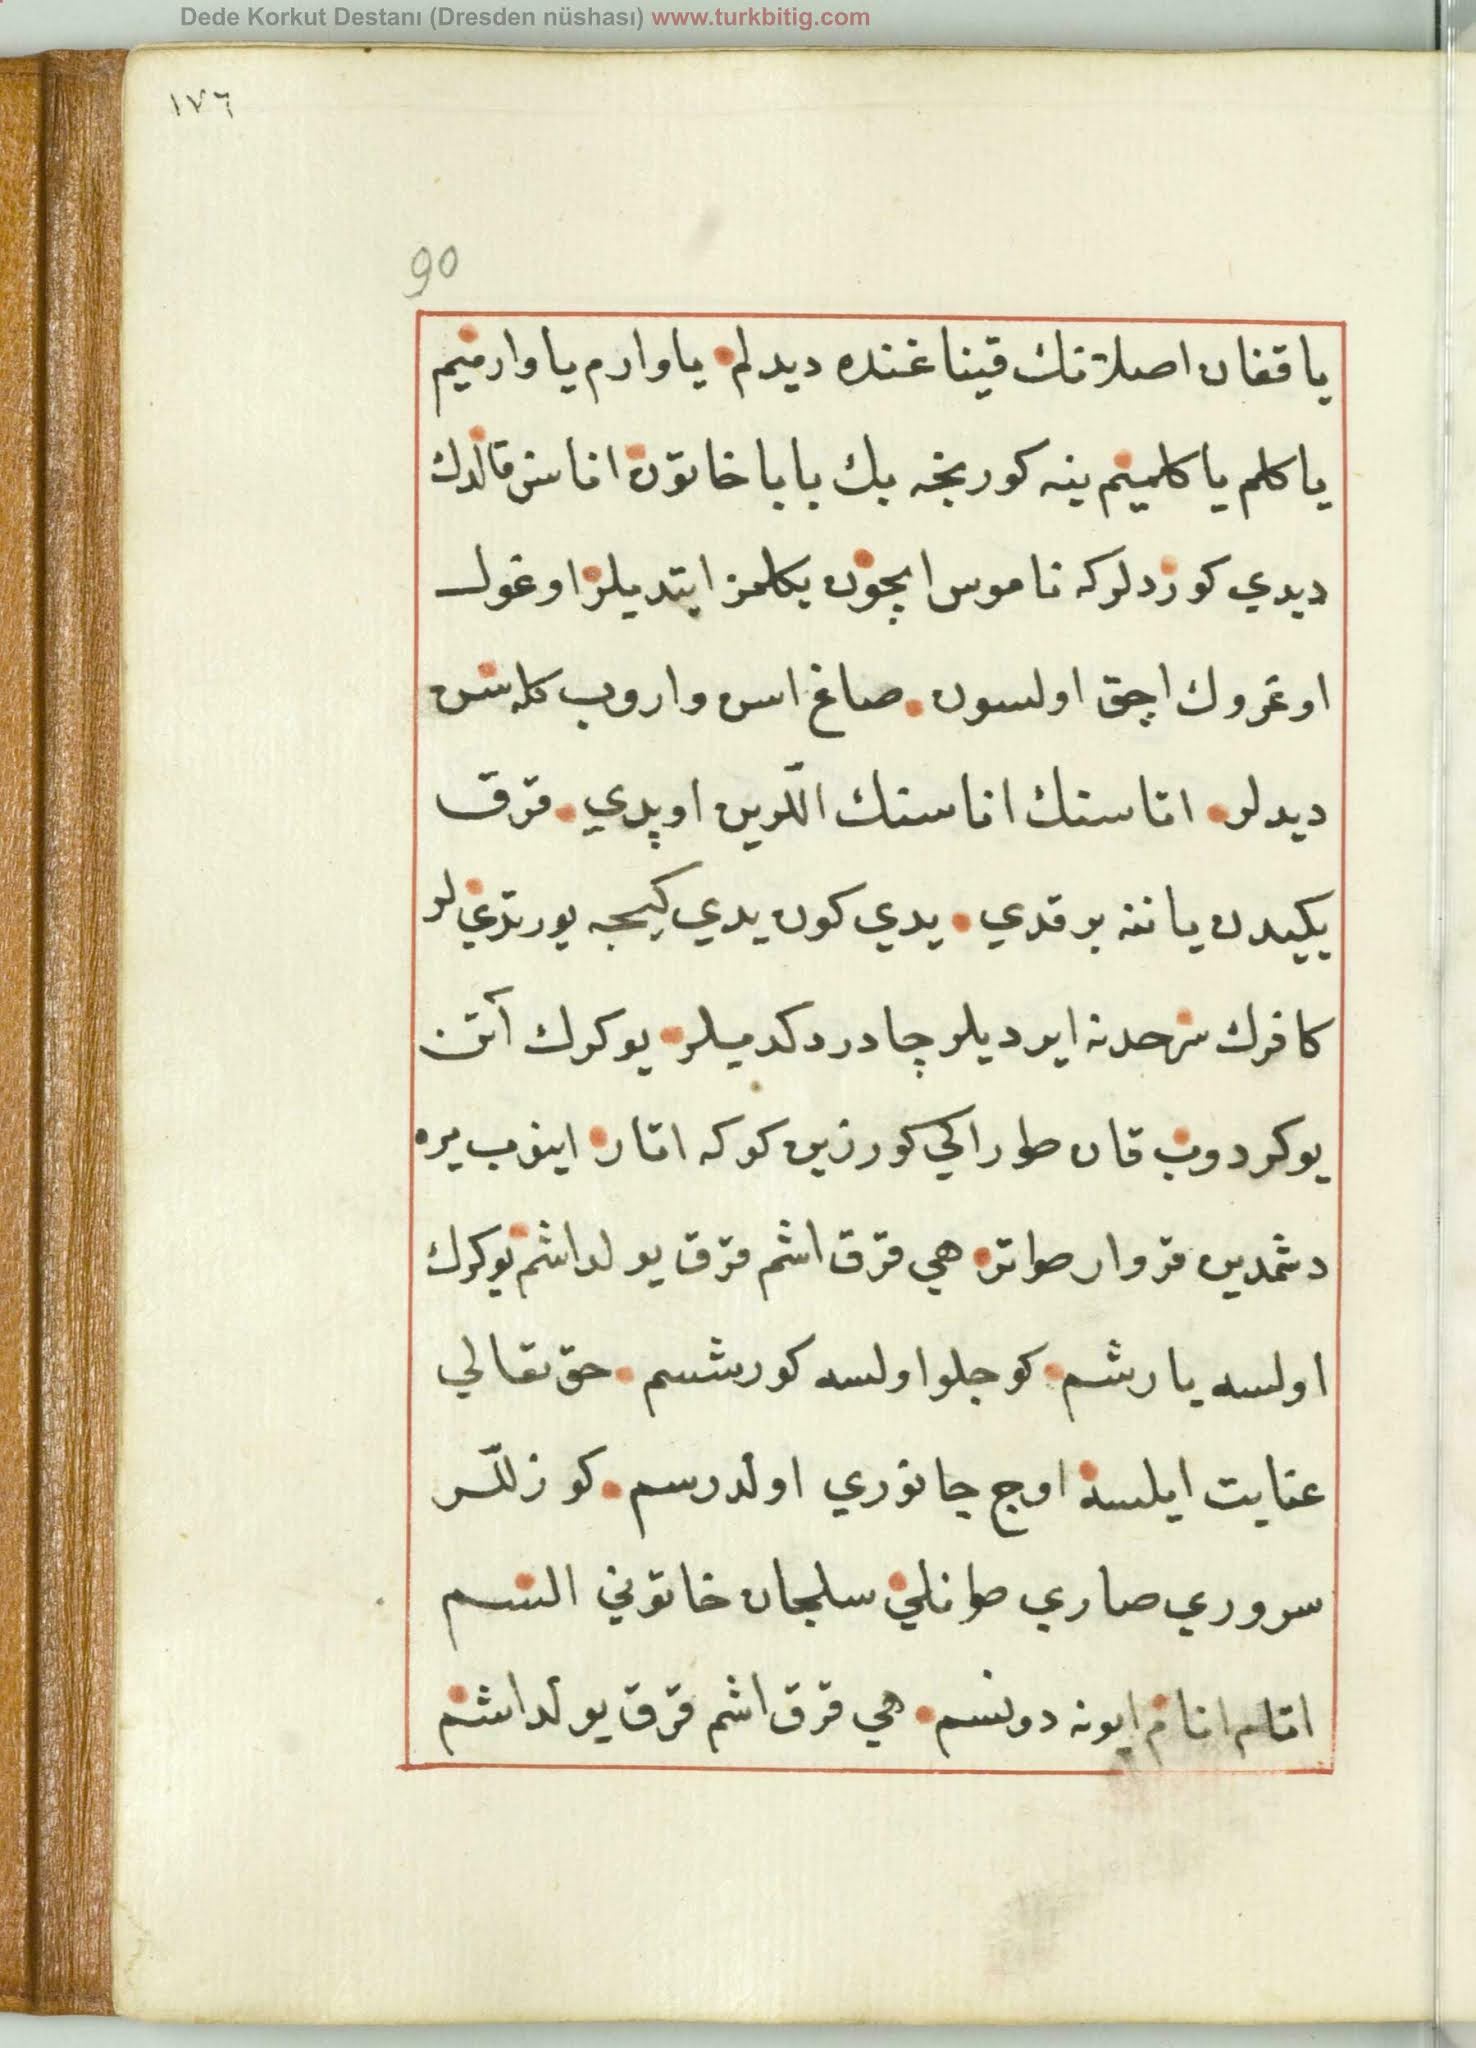 Dede Korkut Destanı (Dresden nüshası) www.turkbitig.com
١٧٦
90
يا قفان اصلانك قيناغنده ديدلم يا وارم يا وارميم
يا كلم يا كلميم ينه كورنجه بك بابا خاتون اناسن قالدك
ديدي كوردلركه ناموس ايچون يكلمز ايتديلر اوغول
اوغروك اچق اولسون صاغ اسن واروب كله سن
ديدلر اتاسنك اناسنك اللرين اوپدي قرق
يكيدن ياننه برقدي يدي كون يدي كيجه يورتدي لر
كافرك سرحدنه ايرديلر چادر دكديلر يوكروك آتن
يوكردوب قان طورالي كورزين كوكه اتار اينوب يره
دشمدين قروار طوتر هي قرق اشم قرق يولداشم يوكرك
اولسه يارشم كوجلو اولسه كورشسم حق تعالي
عنايت ايلسه اوچ جانوري اولدرسم كوزللر
سروري صاري طونلي سلجان خاتوني السم
اتام انام ايونه دونسم هي قرق اشم قرق يولداشم